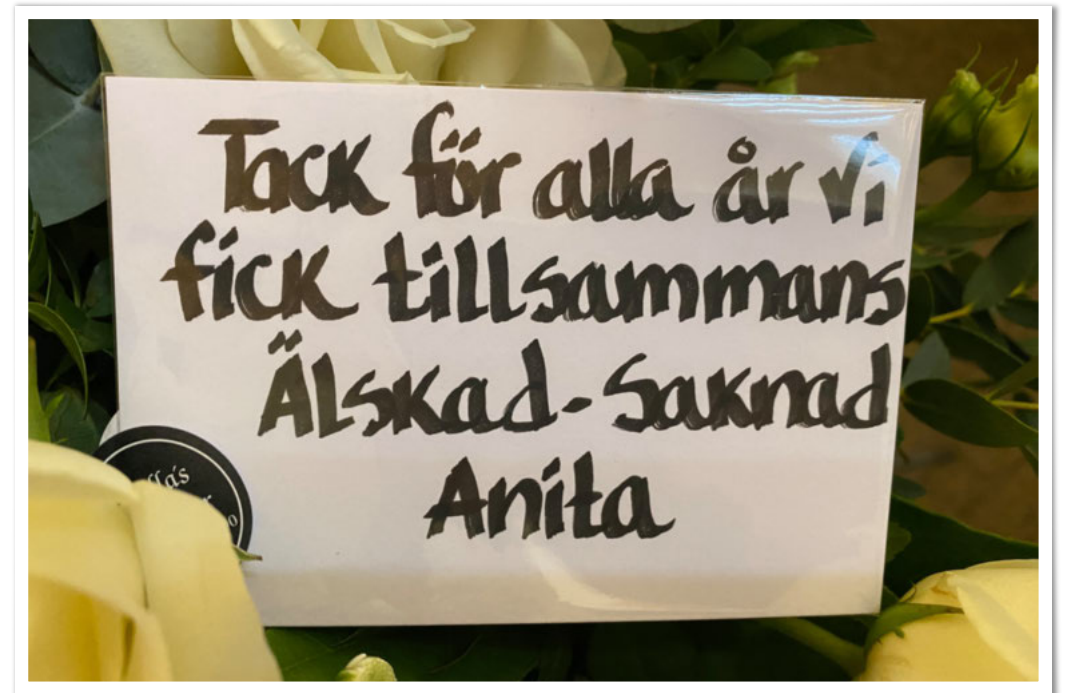 Tack för alla år vi
fick tillsammans
Älskad - Saknad
Anita